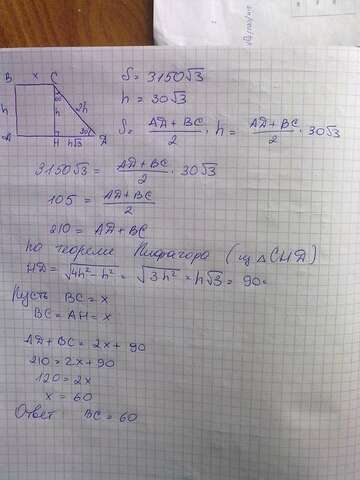 B x C
S = 3150√3
h 60 h 2h
h = 30√3
A H h√3 30 D
S = (AD + BC)/2 · h = (AD + BC)/2 · 30√3
3150√3 = (AD + BC)/2 · 30√3
105 = (AD + BC)/2
210 = AD + BC
по теореме Пифагора (из △CHD)
HD = √4h² - h² = √3h² = h√3 = 90
Пусть BC = x
BC = AH = x
AD + BC = 2x + 90
210 = 2x + 90
120 = 2x
x = 60
Ответ: BC = 60